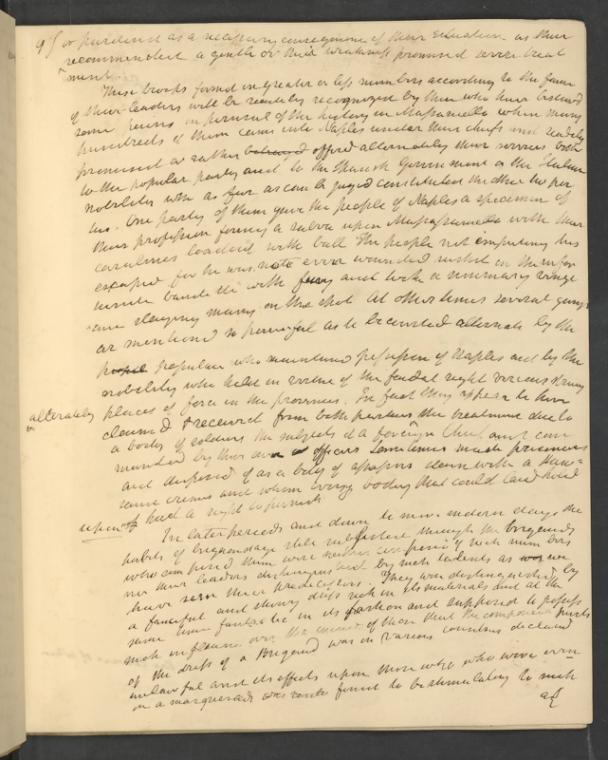 9 or punished as a necessary consequence of their situation as their
recommended a gentle or their weakness promised
ment
These bands formed in greater or less numbers according to the fame
of their leaders will be readily recognized by those who have bestowed
some pains in perusal of the history on Massaniello when many
hundreds of them came into Naples under their chiefs and readily
promised or rather betrayed offerd alternately their services both
to the popular party and to the Spanish Government or the Italian
nobility who as far as can be judged constituted the other two par
ties. One party of them gave the people of Naples a specimen of
their profession firing a salvo upon Massaniello with their
carabines loaded with ball The people not computing his
escaped for he was not even wounded rushd in
banditti with fury and took a summary venge
ance slaying many on the spot At other times several gangs
are mentiond so powerful as to be courted alternate by the
people populace who maintained possession of Naples and by the
nobility who held in virtue of the feudal right various strong
alternately places of force in the provinces. In fact they appear to have
claimed & received from both parties the treatment due to
a body of soldiers the subjects of a foreign Chief and com
manded by their own officers sometimes made prisoners
and disposed of as a body of assassins
crimes and whom every body that could laid hold
upon had a right to punish
In later periods and down to more modern days the
habits of brigandage still subsisted through the brigands
who composed them were composed of such numbers
nor their leaders distinguishd by such talents as we
have seen their predecessors. They were distinguished by
a fanciful and showy dress rich in its materials and at the
same time fantastic in its fashion and supposed to possess
such influence over the of them that the composing parts
of the dress of a Brigand was in various countries declared
unlawful and its effects upon those who wore even
in a masquerade was found to be stimulating to such